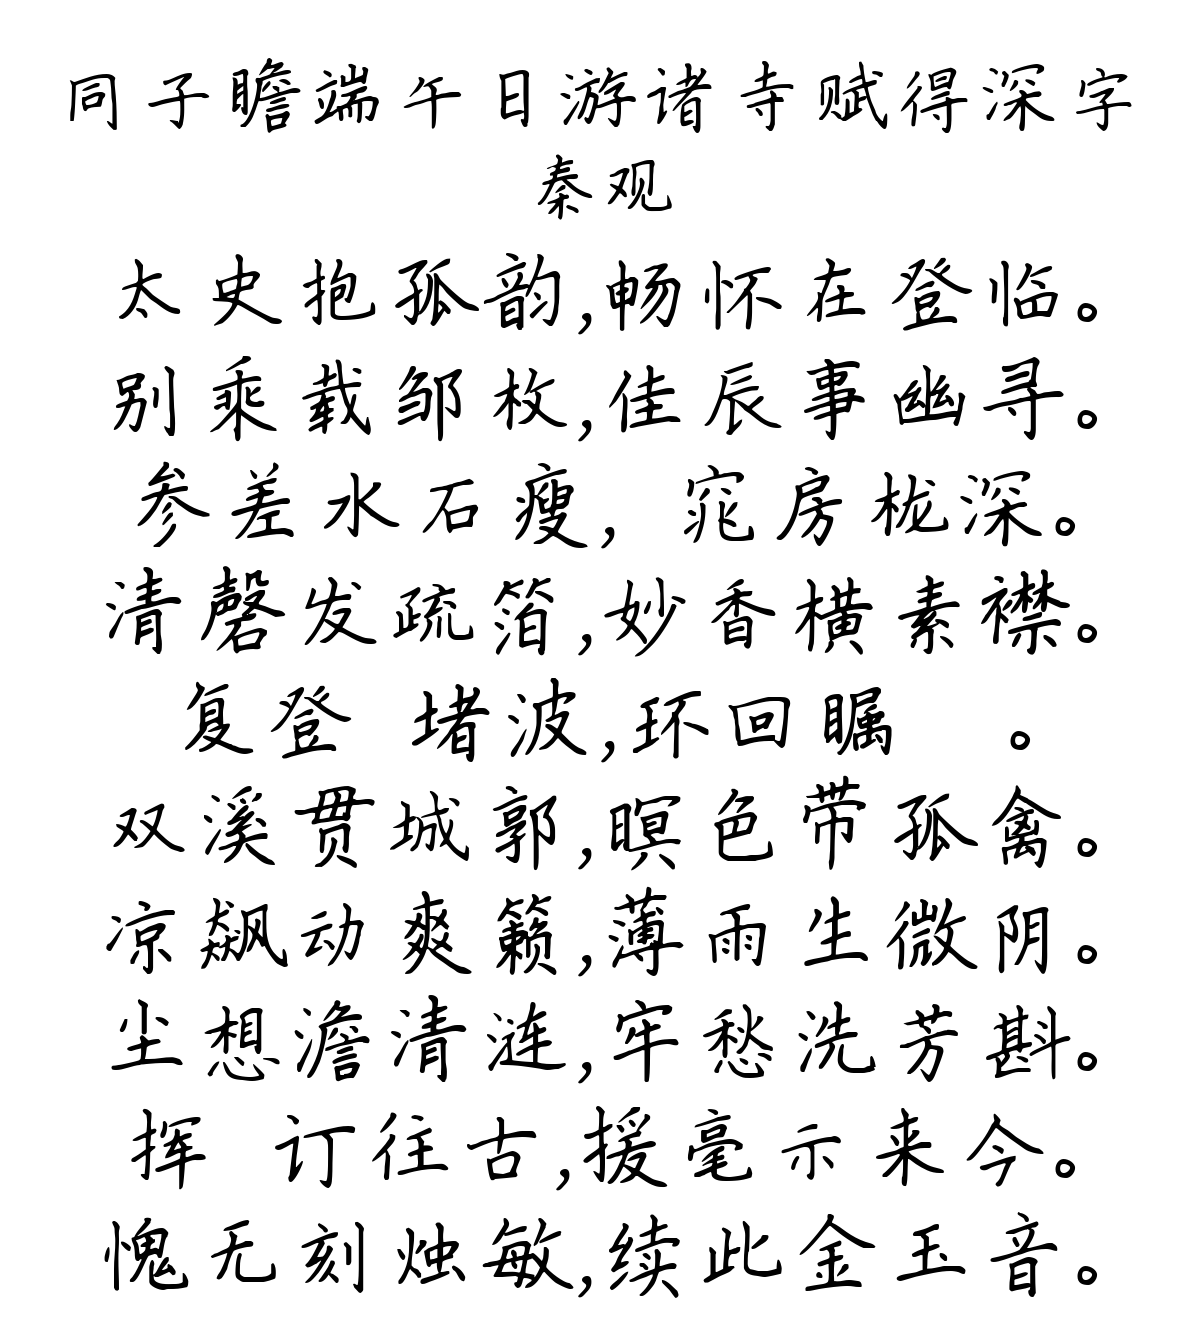 同子瞻端午日游诸寺赋得深字
秦观
太史抱孤韵,畅怀在登临。
别乘载邹枚,佳辰事幽寻。
参差水石瘦, 窕房栊深。
清磬发疏箔,妙香横素襟。
复登 堵波,环回瞩 。
双溪贯城郭,暝色带孤禽。
凉飙动爽籁,薄雨生微阴。
尘想澹清涟,牢愁洗芳斟。
挥 订往古,援毫示来今。
愧无刻烛敏,续此金玉音。